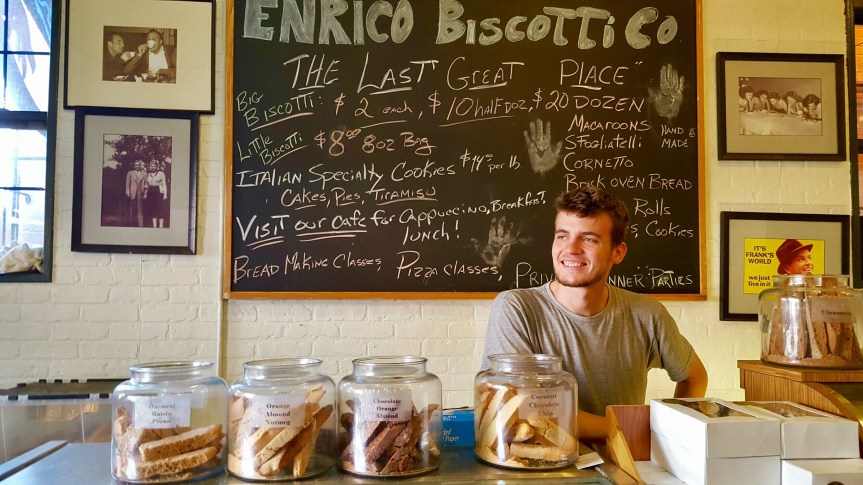 ENRICO BISCOTTI CO
"THE LAST GREAT PLACE"
BIG BISCOTTI: $2 each, $10 half doz, $20 DOZEN
LITTLE BISCOTTI $8.00 8oz BAG
ITALIAN SPECIALTY COOKIES per lb
CAKES, PIES, TIRAMISU
VISIT OUR CAFE for CAPPUCCINO, BREAKFAST,
lunch!
BREAD MAKING CLASSES, PIZZA CLASSES,
DINNER PARTIES
MACAROONS
SFOGLIATELLI
CORNETTO
BRICK OVEN BREAD
Rolls
Cookies
HAND
MADE
IT'S
FRANK'S
WORLD
we just
live in it
Oatmeal
Raisin
Pecan
Orange
Almond
Nutmeg
Chocolate
Orange
Almond
Coconut
Chocolate
Chip
Cinnamon
Paper